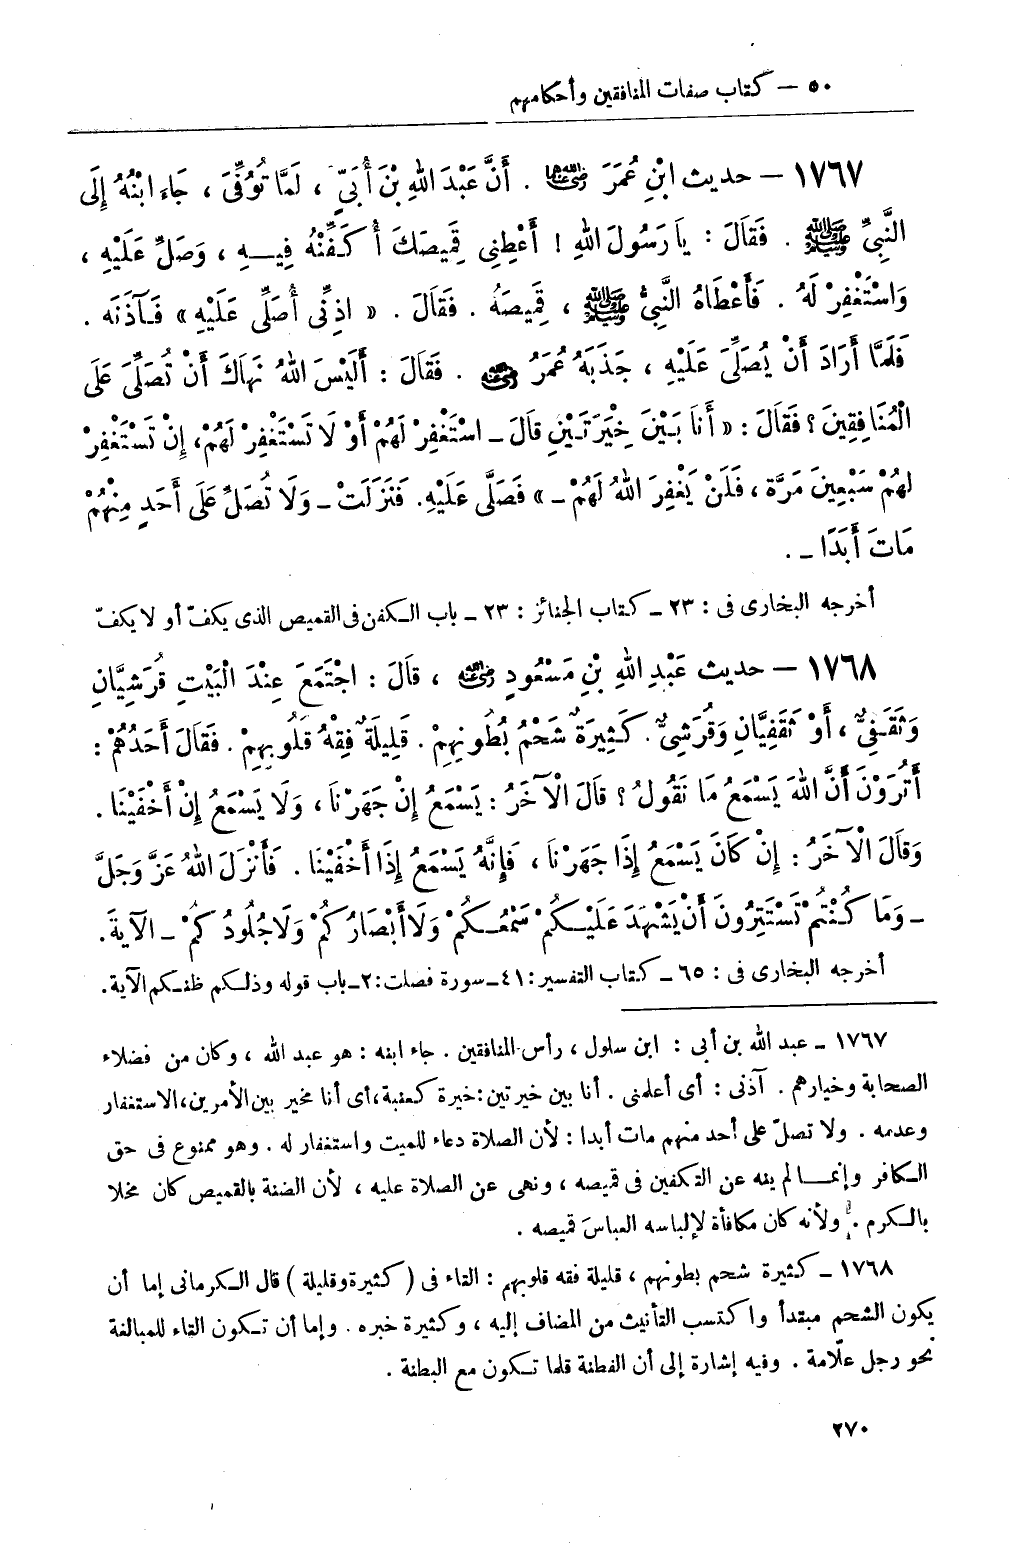 ٥٠ — كتاب صفات المنافقين وأحكامهم
١٧٦٧ — حديث ابْنِ عُمَرَ رضي الله عنهما . أَنَّ عَبْدَ اللهِ بْنَ أُبَيٍّ ، لَمَّا تُوُفِّىَ ، جَاءَ ابْنُهُ إِلَى
النَّبِىِّ ﷺ . فَقَالَ : يَا رَسُولَ اللهِ ! أَعْطِنِى قَمِيصَكَ أُكَفِّنْهُ فِيهِ ، وَصَلِّ عَلَيْهِ ،
وَاسْتَغْفِرْ لَهُ . فَأَعْطَاهُ النَّبِىُّ ﷺ ، قَمِيصَهُ . فَقَالَ . « اذِنِّى أُصَلِّى عَلَيْهِ » فَآذَنَه .
فَلَمَّا أَرَادَ أَنْ يُصَلِّىَ عَلَيْهِ ، جَذَبَهُ عُمَرُ رضي الله عنه . فَقَالَ : أَلَيْسَ اللهُ نَهَاكَ أَنْ تُصَلِّىَ عَلَى
الْمُنَافِقِينَ ؟ فَقَالَ : « أَنَا بَيْنَ خِيَرَتَيْنِ قَالَ ــ اسْتَغْفِرْ لَهُمْ أَوْ لَا تَسْتَغْفِرْ لَهُمْ، إِنْ تَسْتَغْفِرْ
لَهُمْ سَبْعِينَ مَرَّة ، فَلَنْ يَغْفِرَ اللهُ لَهُمْ ــ » فَصَلَّى عَلَيْهِ. فَنَزَلَتْ ــ وَلَا تُصَلِّ عَلَى أَحَدٍ مِنْهُمْ
مَاتَ أَبَدًا ــ .
أخرجه البخارى فى : ٢٣ ــ كتاب الجنائز : ٢٣ ــ باب الكفن فى القميص الذى يكفّ أو لا يكفّ
١٧٦٨ — حديث عَبْدِ اللهِ بْنِ مَسْعُودٍ رضي الله عنه ، قَالَ : اجْتَمَعَ عِنْدَ الْبَيْتِ قُرَشِيَّانِ
وَثَقَفِىٌّ ، أَوْ ثَقَفِيَّانِ وَقُرَشِىٌّ . كَثِيرَةٌ شَحْمُ بُطُونِهِمْ . قَلِيلَةٌ فِقْهُ قُلُوبِهِمْ . فَقَالَ أَحَدُهُمْ :
أَتُرَوْنَ أَنَّ اللهَ يَسْمَعُ مَا نَقُولُ ؟ قَالَ الْآخَرُ : يَسْمَعُ إِنْ جَهَرْنَا ، وَلَا يَسْمَعُ إِنْ أَخْفَيْنَا .
وَقَالَ الْآخَرُ : إِنْ كَانَ يَسْمَعُ إِذَا جَهَرْنَا ، فَإِنَّهُ يَسْمَعُ إِذَا أَخْفَيْنَا . فَأَنْزَلَ اللهُ عَزَّ وَجَلَّ
ــ وَمَا كُنْتُمْ تَسْتَتِرُونَ أَنْ يَشْهَدَ عَلَيْكُمْ سَمْعُكُمْ وَلَا أَبْصَارُكُمْ وَلَا جُلُودُكُمْ ــ الآيَةَ .
أخرجه البخارى فى : ٦٥ ــ كتاب التفسير : ٤١ــ سورة فصلت : ٢ــ باب قوله وذلكم ظنكم الآية .
١٧٦٧ ــ عبد الله بن أبى : ابن سلول ، رأس المنافقين . جاء ابنه : هو عبد الله ، وكان من فضلاء
الصحابة وخيارهم . آذنى : أى أعلمنى . أنا بين خيرتين : خيرة كعنبة ، أى أنا مخير بين الأمرين ، الاستغفار
وعدمه . ولا تصلّ على أحد منهم مات أبدا : لأن الصلاة دعاء للميت واستغفار له . وهو ممنوع فى حق
الكافر وإنما لم ينه عن التكفين فى قميصه ، ونهى عن الصلاة عليه ، لأن الضنة بالقميص كان مخلا
بالكرم . ولأنه كان مكافأة لإلباسه العباسَ قميصه .
١٧٦٨ ــ كثيرة شحم بطونهم ، قليلة فقه قلوبهم : التاء فى ( كثيرة وقليلة ) قال الكرمانى إما أن
يكون الشحم مبتدأ واكتسب التأنيث من المضاف إليه ، وكثيرة خبره . وإما أن تكون التاء للمبالغة
نحو رجل علّامة . وفيه إشارة إلى أن الفطنة قلما تكون مع البطنة .
٢٧٠